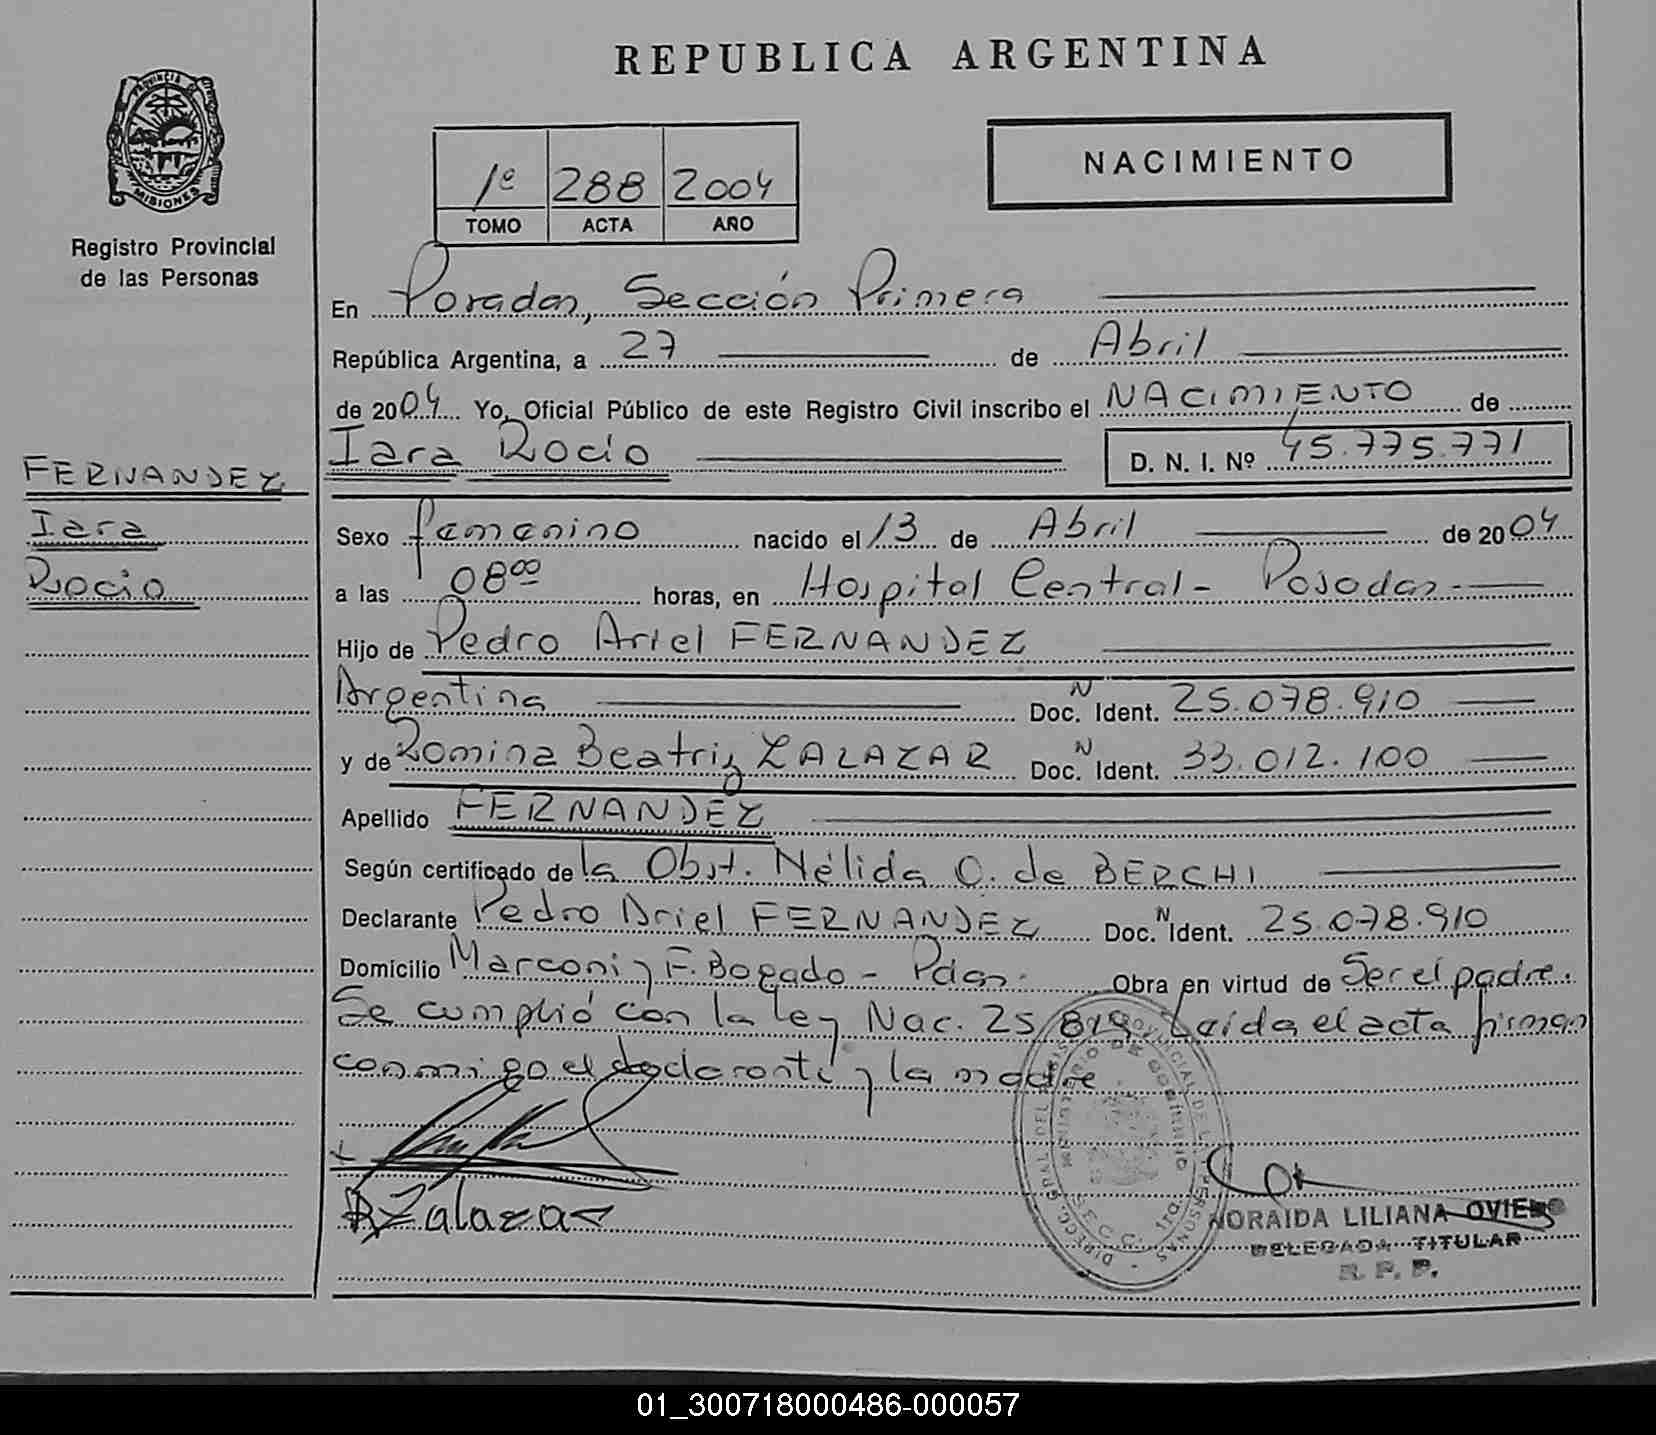 REPUBLICA ARGENTINA
PROVINCIA DE
MISIONES
Registro Provincial
de las Personas
1º 288 2004
TOMO ACTA AÑO
NACIMIENTO
En Posadas, Sección Primera
República Argentina, a 27 de Abril
de 2004 Yo, Oficial Público de este Registro Civil inscribo el NACIMIENTO de
Iara Rocío D. N. I. Nº 45.775.771
FERNANDEZ
Iara
Rocio
Sexo femenino nacido el 13 de Abril de 2004
a las 08⁰⁰ horas, en Hospital Central - Posadas
Hijo de Pedro Ariel FERNANDEZ
Argentina Doc. N Ident. 25.078.910
y de Romina Beatriz ZALAZAR Doc. N Ident. 33.012.100
Apellido FERNANDEZ
Según certificado de la Obst. Nélida O. de BERCHI
Declarante Pedro Ariel FERNANDEZ Doc. N Ident. 25.078.910
Domicilio Marconi y F. Bogado - Pdas. Obra en virtud de Ser el padre.
Se cumplió con la ley Nac. 25.819. Leída el acta firman
conmigo el declarante y la madre
RZalazar
NORAIDA LILIANA OVIEDO
DELEGADA TITULAR
R. P. P.
01_300718000486-000057